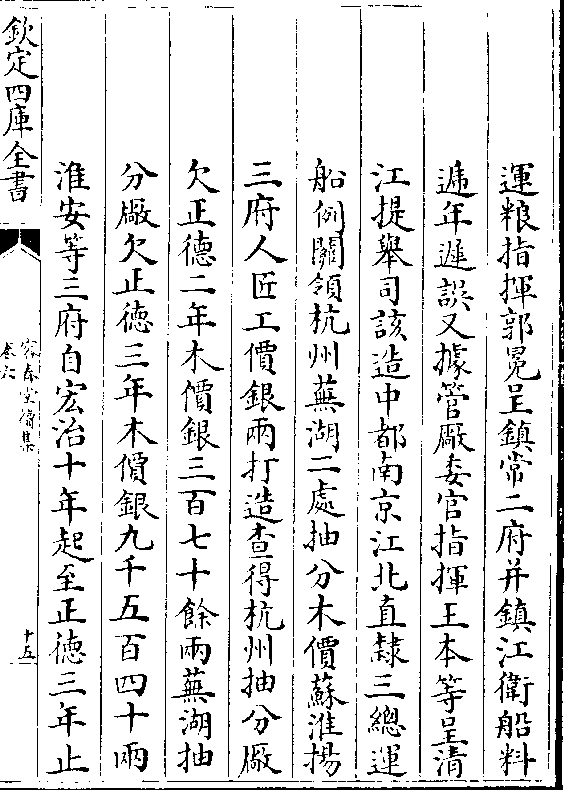 運粮指揮郭冕呈鎮常二府并鎮江衛船料
遞年遲誤又據管厰委官指揮王本等呈清
江提舉司該造中都南京江北直隸三總運
船例關領杭州蕪湖二處抽分木價蘇淮揚
三府人匠工價銀兩打造查得杭州抽分厰
欠正德二年木價銀三百七十餘兩蕪湖抽
分厰欠正德三年木價銀九千五百四十兩
淮安等三府自宏治十年起至正德三年止
欽定四庫全書
容春堂續集
卷六
十五